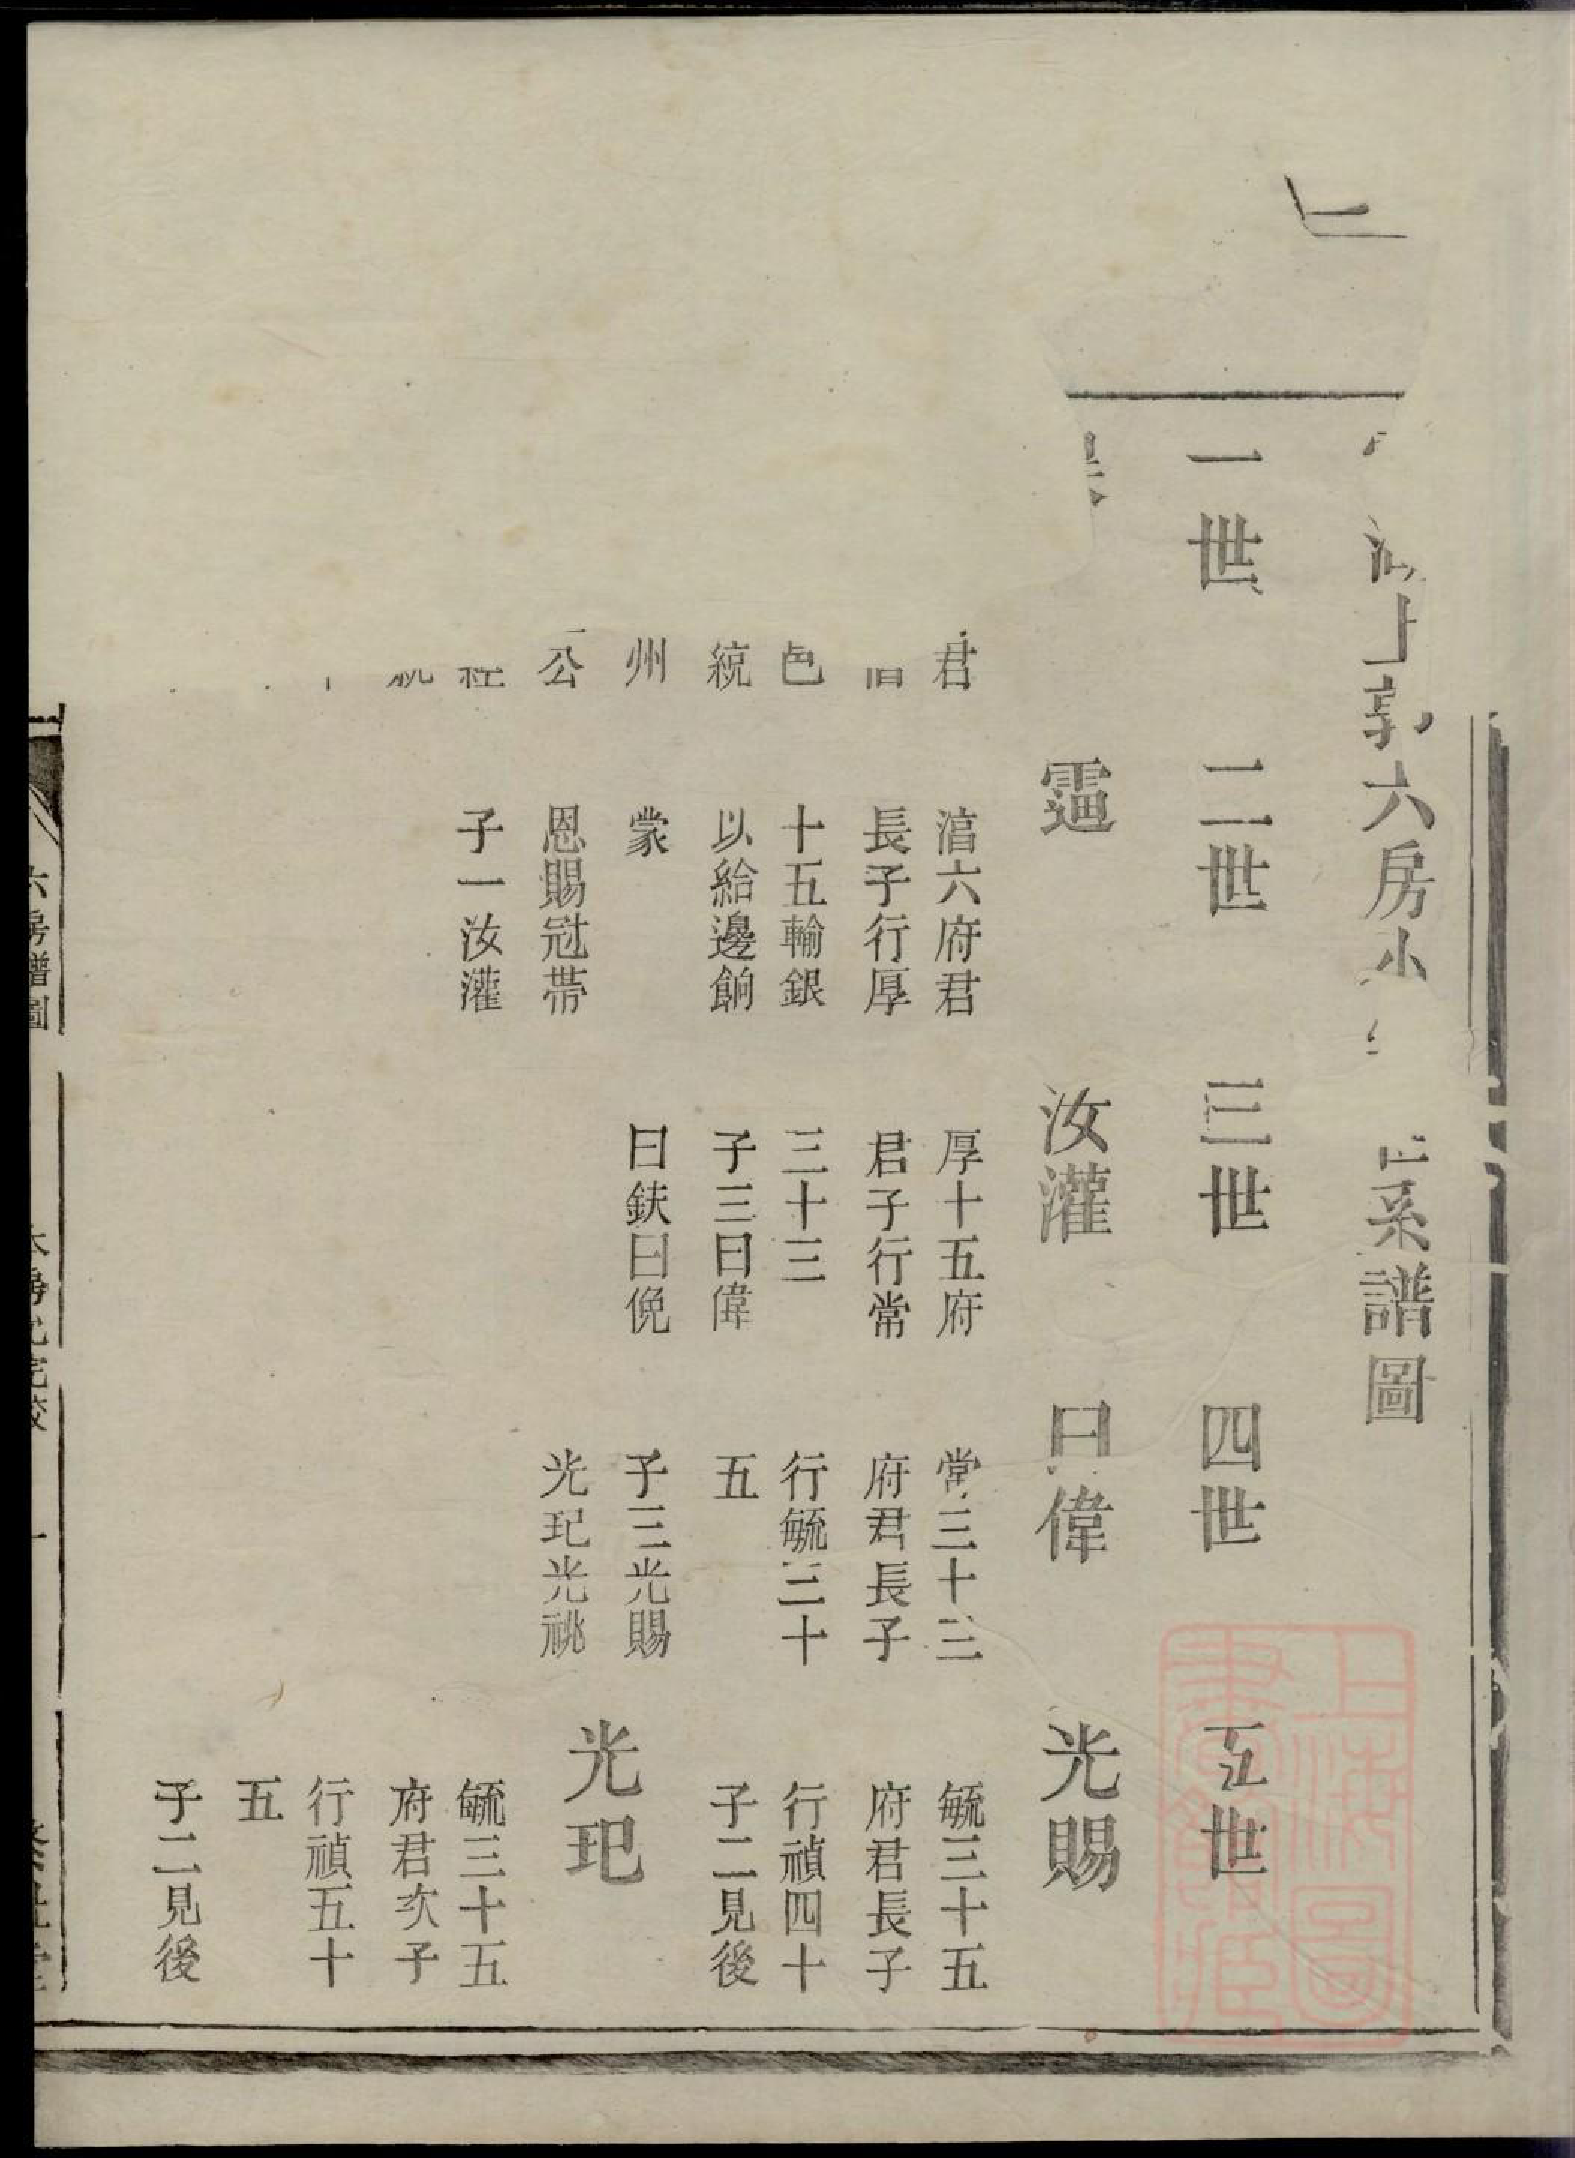 上郭六房小
系譜圖
一世
二世
三世
四世
五世
霱
汝灌
曰偉
光賜
君
色
統
州
公
滀六府君
長子行厚
十五輸銀
以給邊餉
蒙
恩賜冠帶
子一汝灌
厚十五府
君子行常
三十三
子三曰偉
曰鈇曰俛
常三十三
府君長子
行毓三十
五
子三光賜
光玘光祧
毓三十五
府君長子
行禎四十
子二見後
光玘
毓三十五
府君次子
行禎五十
五
子二見後
六房譜圖
上海圖書館藏